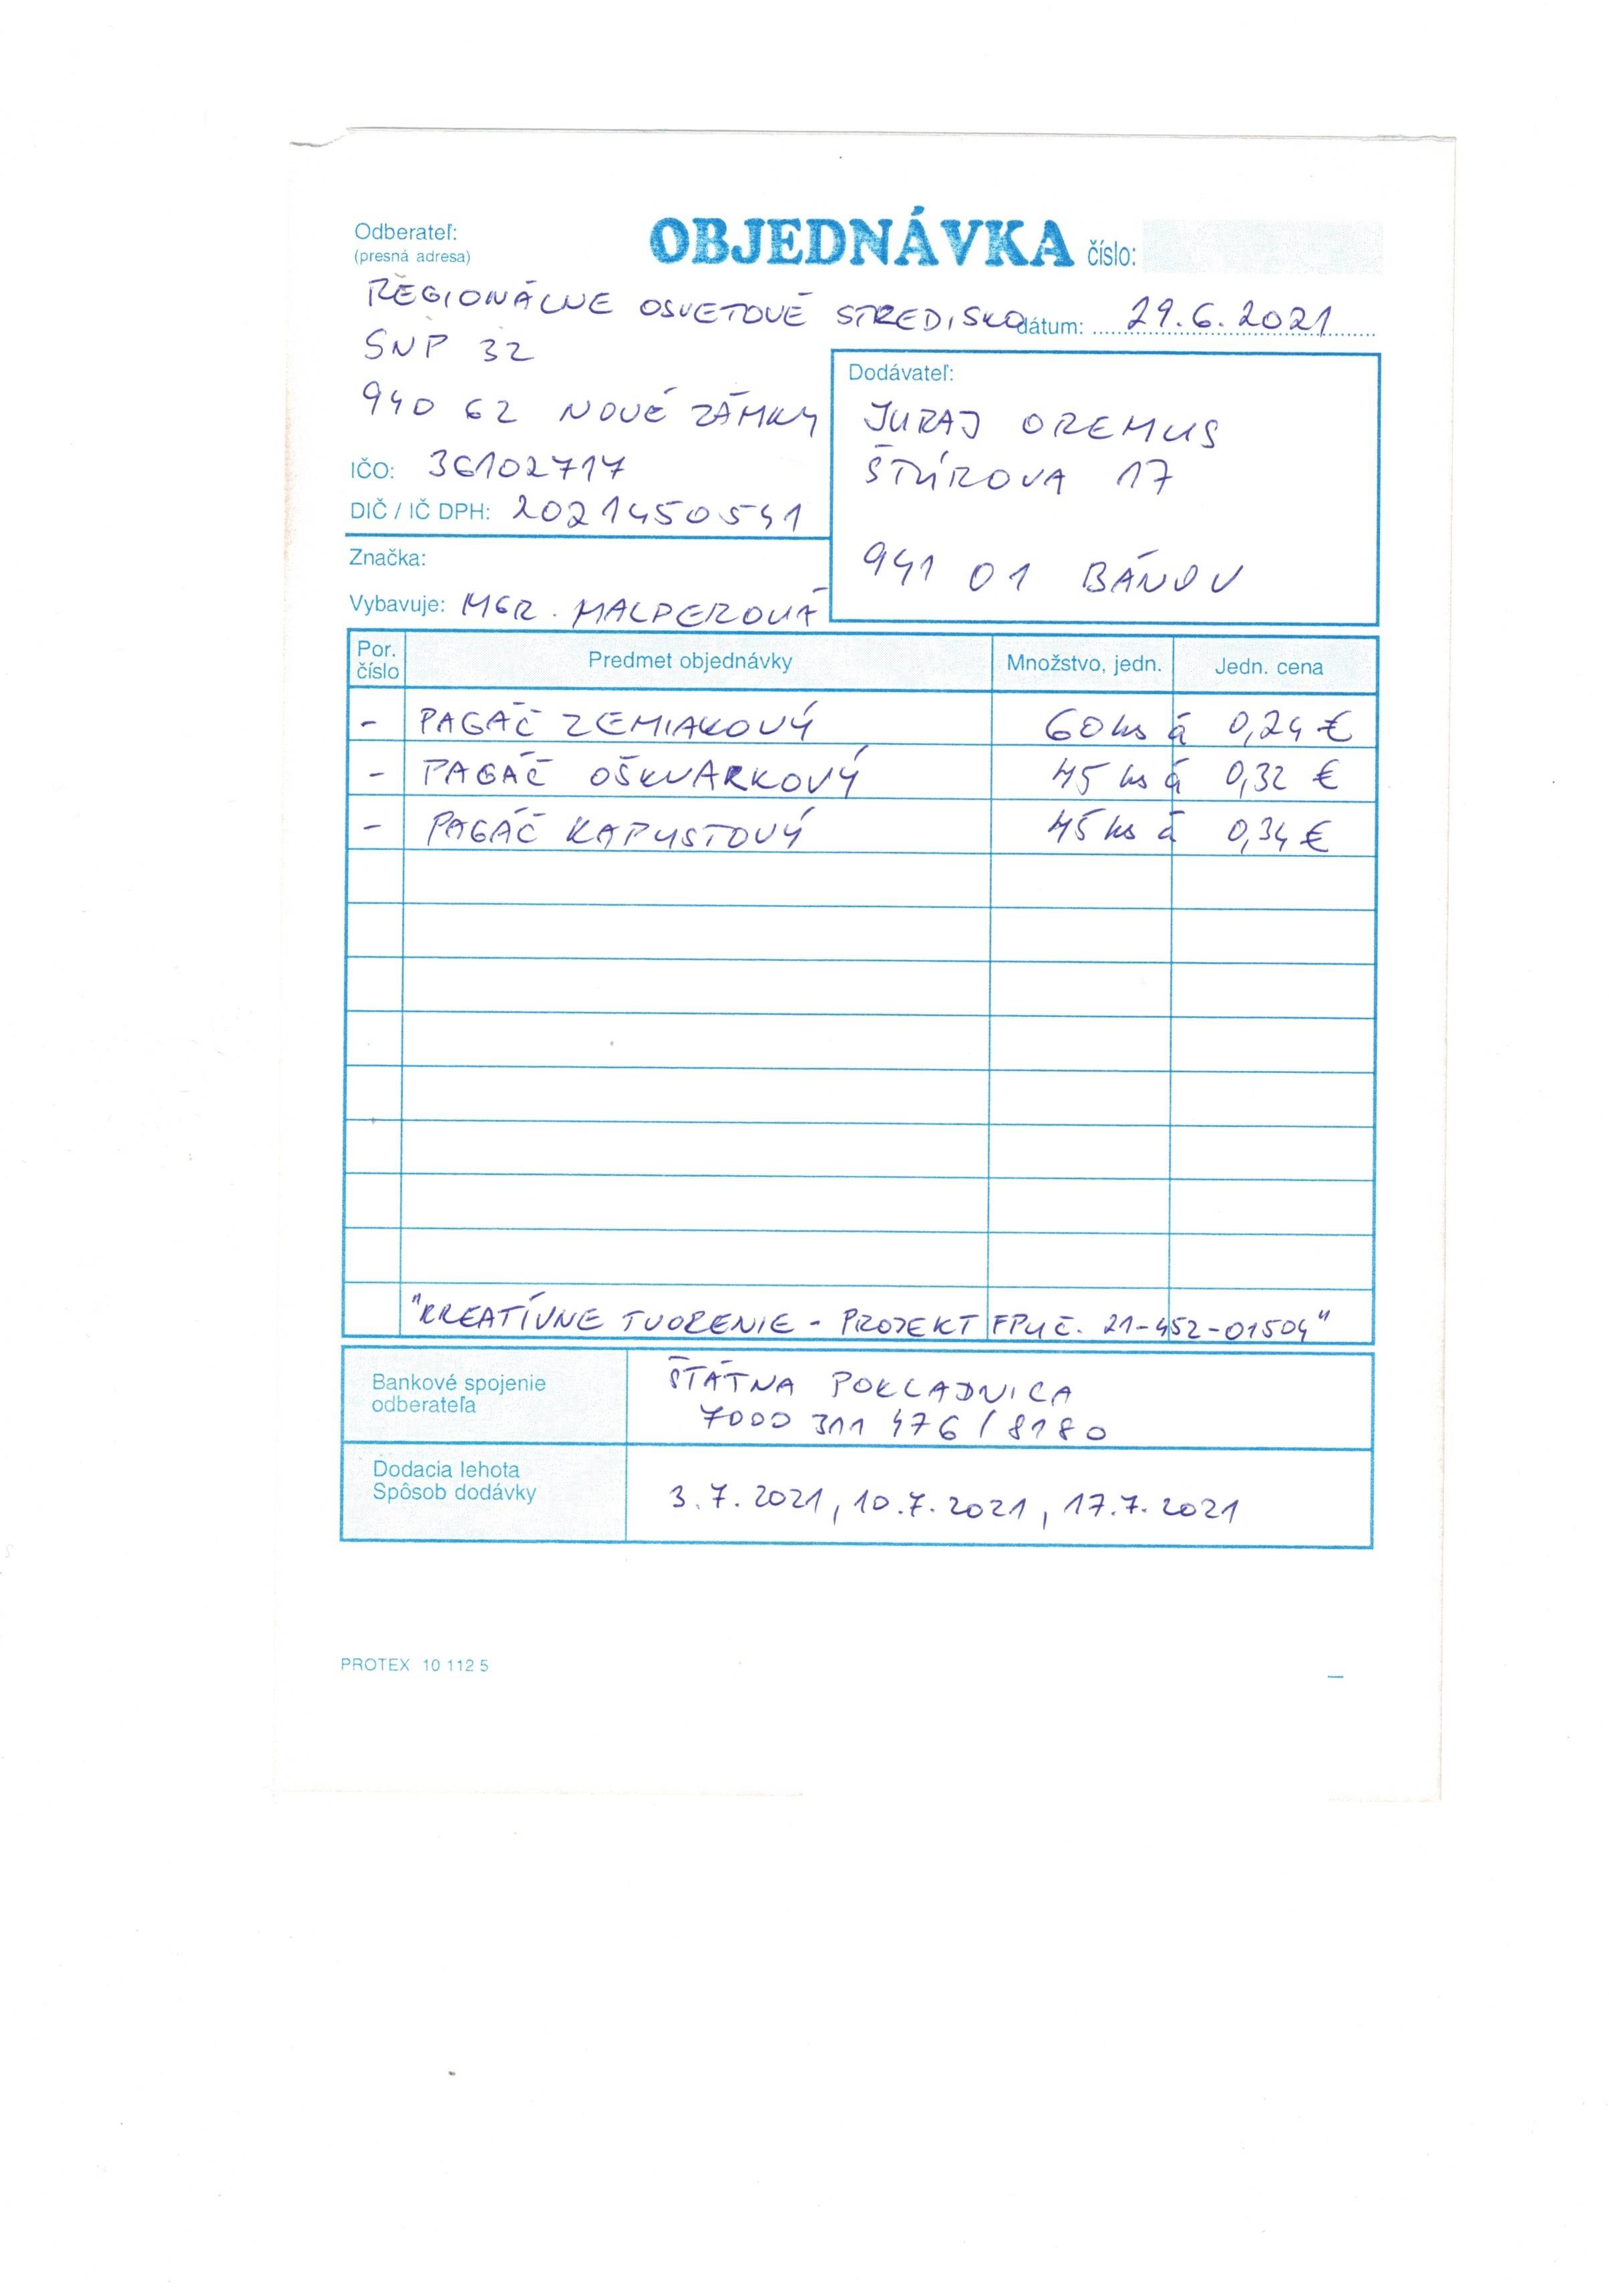 Odberateľ:
(presná adresa)
OBJEDNÁVKA číslo:
REGIONÁLNE OSVETOVÉ STREDISKO
dátum: 29.6.2021
SNP 32
940 62 NOVÉ ZÁMKY
IČO: 36102717
DIČ / IČ DPH: 2021450541
Dodávateľ:
JURAJ OREMUS
ŠTÚROVA 17
941 01 BÁNOV
Značka:
Vybavuje: MGR. MALPEROVÁ
Por. číslo Predmet objednávky Množstvo, jedn. Jedn. cena
- PAGÁČ ZEMIAKOVÝ 60 ks á 0,24 €
- PAGÁČ OŠKVARKOVÝ 45 ks á 0,32 €
- PAGÁČ KAPUSTOVÝ 45 ks á 0,34 €
"KREATÍVNE TVORENIE - PROJEKT FPU Č. 21-452-01504"
Bankové spojenie
odberateľa
ŠTÁTNA POKLADNICA
7000 311 476 / 8180
Dodacia lehota
Spôsob dodávky
3.7.2021, 10.7.2021, 17.7.2021
PROTEX 10 112 5